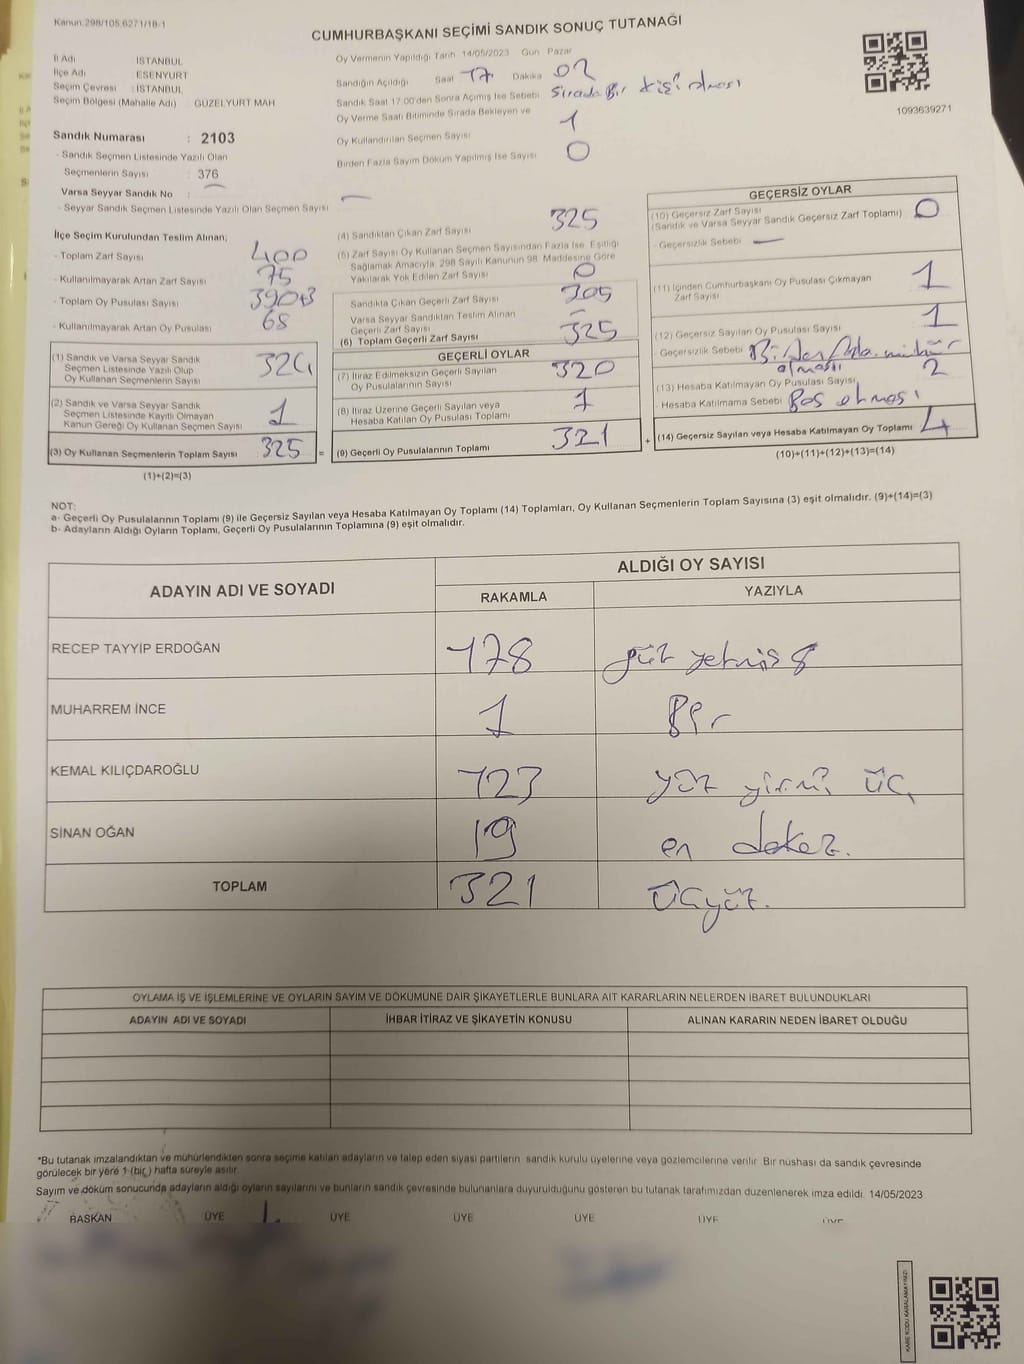 Kanun.298/105,6271/18-1
CUMHURBAŞKANI SEÇİMİ SANDIK SONUÇ TUTANAĞI
1093639271
İl Adı : İSTANBUL
İlçe Adı : ESENYURT
Seçim Çevresi : İSTANBUL
Seçim Bölgesi (Mahalle Adı) GÜZELYURT MAH
Sandık Numarası : 2103
- Sandık Seçmen Listesinde Yazılı Olan
Seçmenlerin Sayısı : 376
Varsa Seyyar Sandık No : —
- Seyyar Sandık Seçmen Listesinde Yazılı Olan Seçmen Sayısı : —
Oy Vermenin Yapıldığı Tarih 14/05/2023 Gün Pazar
Sandığın Açıldığı Saat 17 Dakika 02
Sandık Saat 17:00'den Sonra Açılmış İse Sebebi Sırada Bir kişi olması
Oy Verme Saati Bitiminde Sırada Bekleyen ve
Oy Kullandırılan Seçmen Sayısı 1
Birden Fazla Sayım Döküm Yapılmış İse Sayısı 0
İlçe Seçim Kurulundan Teslim Alınan;
- Toplam Zarf Sayısı 400
- Kullanılmayarak Artan Zarf Sayısı 75
- Toplam Oy Pusulası Sayısı
- Kullanılmayarak Artan Oy Pusulası 68
(1) Sandık ve Varsa Seyyar Sandık
Seçmen Listesinde Yazılı Olup
Oy Kullanan Seçmenlerin Sayısı 324
(2) Sandık ve Varsa Seyyar Sandık
Seçmen Listesinde Kayıtlı Olmayan
Kanun Gereği Oy Kullanan Seçmen Sayısı 1
(3) Oy Kullanan Seçmenlerin Toplam Sayısı 325
(1)+(2)=(3)
(4) Sandıktan Çıkan Zarf Sayısı 325
(5) Zarf Sayısı Oy Kullanan Seçmen Sayısından Fazla İse, Eşitliği
Sağlamak Amacıyla, 298 Sayılı Kanunun 98. Maddesine Göre
Yakılarak Yok Edilen Zarf Sayısı 0
Sandıkta Çıkan Geçerli Zarf Sayısı
Varsa Seyyar Sandıktan Teslim Alınan
Geçerli Zarf Sayısı —
(6) Toplam Geçerli Zarf Sayısı 325
GEÇERLİ OYLAR
(7) İtiraz Edilmeksizin Geçerli Sayılan
Oy Pusulalarının Sayısı 320
(8) İtiraz Üzerine Geçerli Sayılan veya
Hesaba Katılan Oy Pusulası Toplamı 1
= (9) Geçerli Oy Pusulalarının Toplamı 321 +
GEÇERSİZ OYLAR
(10) Geçersiz Zarf Sayısı
(Sandık ve Varsa Seyyar Sandık Geçersiz Zarf Toplamı) 0
- Geçersizlik Sebebi —
(11) İçinden Cumhurbaşkanı Oy Pusulası Çıkmayan
Zarf Sayısı 1
(12) Geçersiz Sayılan Oy Pusulası Sayısı 1
- Geçersizlik Sebebi Birden fazla mühür
olması
(13) Hesaba Katılmayan Oy Pusulası Sayısı 2
- Hesaba Katılmama Sebebi Boş olması
(14) Geçersiz Sayılan veya Hesaba Katılmayan Oy Toplamı 4
(10)+(11)+(12)+(13)=(14)
NOT:
a- Geçerli Oy Pusulalarının Toplamı (9) ile Geçersiz Sayılan veya Hesaba Katılmayan Oy Toplamı (14) Toplamları, Oy Kullanan Seçmenlerin Toplam Sayısına (3) eşit olmalıdır. (9)+(14)=(3)
b- Adayların Aldığı Oyların Toplamı, Geçerli Oy Pusulalarının Toplamına (9) eşit olmalıdır.
ADAYIN ADI VE SOYADI
ALDIĞI OY SAYISI
RAKAMLA YAZIYLA
RECEP TAYYİP ERDOĞAN 178 yüz yetmiş 8
MUHARREM İNCE 1 Bir
KEMAL KILIÇDAROĞLU 123 yüz yirmi üç
SİNAN OĞAN 19 on dokuz.
TOPLAM 321 Üçyüz.
OYLAMA İŞ VE İŞLEMLERİNE VE OYLARIN SAYIM VE DÖKÜMÜNE DAİR ŞİKAYETLERLE BUNLARA AİT KARARLARIN NELERDEN İBARET BULUNDUKLARI
ADAYIN ADI VE SOYADI İHBAR İTİRAZ VE ŞİKAYETİN KONUSU ALINAN KARARIN NEDEN İBARET OLDUĞU
*Bu tutanak imzalandıktan ve mühürlendikten sonra seçime katılan adayların ve talep eden siyasi partilerin sandık kurulu üyelerine veya gözlemcilerine verilir. Bir nüshası da sandık çevresinde
görülecek bir yere 1 (bir) hafta süreyle asılır.
Sayım ve döküm sonucunda adayların aldığı oyların sayılarını ve bunların sandık çevresinde bulunanlara duyurulduğunu gösteren bu tutanak tarafımızdan düzenlenerek imza edildi. 14/05/2023
BAŞKAN ÜYE ÜYE ÜYE ÜYE ÜYE ÜYE
KARE KODU KARALAMAYINIZ!